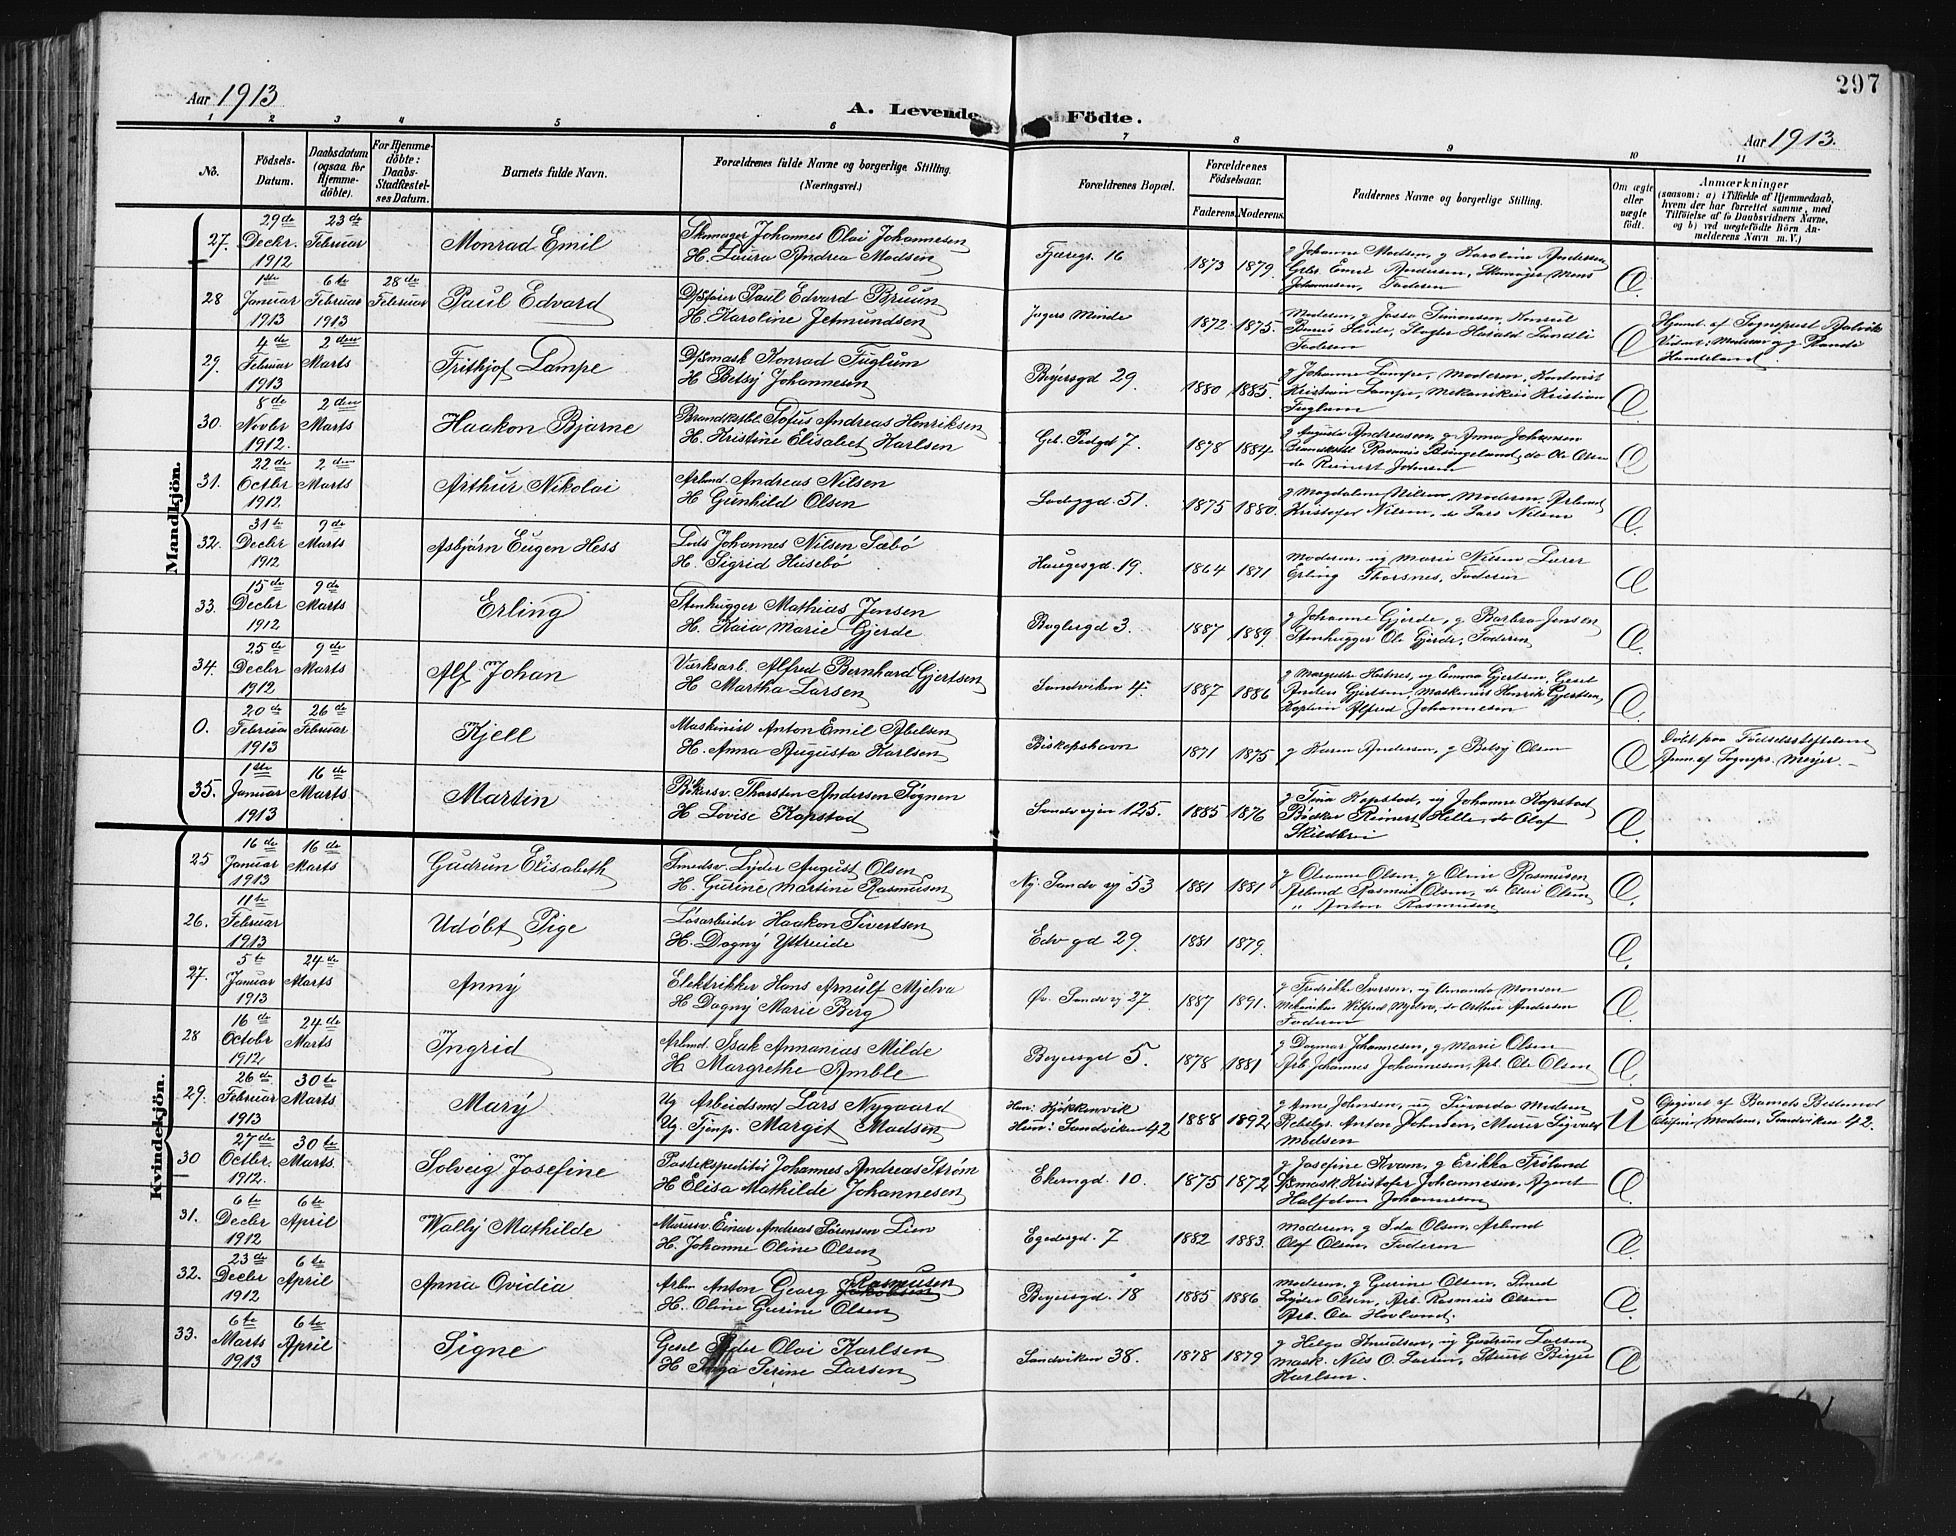 297
Aar 1913
A. Levende Födte.
Aar 1913.
1 2 3 4 5 6 7 8 9 10 11
No.
Födsels-Datum.
Daabsdatum (ogsaa for Hjemme-döbte).
For Hjemme-döbte: Daabs-Stadfæstel-ses Datum.
Barnets fulde Navn.
Forældrenes fulde Navne og borgerlige Stilling.
(Næringsvei.)
Forældrenes Bopæl.
Forældrenes Födselsaar.
Faderens. Moderens.
Faddernes Navne og borgerlige Stilling.
Om ægte eller uægte födt.
Anmærkninger
(saasom: a) i Tilfælde af Hjemmedaab,
hvem der har forrettet samme, med
Tilföielse af to Daabsvidners Navne,
og b) ved uegtefödte Börn An-
melderens Navn m. V.)
Mandkjön.
27. 29de Decbr. 1912 23de Februar Monrad Emil
Skomager Johannes Olai Johannesen
H. Laura Andrea Madsen
Fjæregr. 16 1873 1879
g Johanne Madsen, g Karoline Andersen
Grbr. Emil Andersen, Skomager Mons
Johannesen, Faderen
Æ.
28 1ste Januar 1913 6te Februar 1913 28de Februar Paul Edvard
Paul Edvard Bruun
H. Karoline Jetmundsen
Jægers Minde 1872 1875
Moderen, g Josefa Simonsen, Konsul
Faderen
Æ
Hjemd. af Sognepræst
Vidner: Moderen og g Randi
29. 4de Februar 1913 2den Marts Frithjof Lampe
Dpsmask Konrad Fuglum
H Betsy Johannesen
Beyersgd 29. 1880 1885.
g Johanne Lampe, Moderen, Kontorist
Kristian Lampe, Mekanikus Kristian
Fuglum
Æ
30. 8de Novbr 1912. 2den Marts Haakon Bjarne
Brandkstbl. Sofus Andreas Henriksen
H. Kristine Elisabet Karlsen
7. 1878 1884.
g Augusta Andreasen, g Anna Johansen
Brandkstbl Rasmus Bringeland, do Ole Olsen
do Reinert Johnsen
Æ
31. 22de Octbr 1912. 2den Marts Arthur Nikolai
Arbmd. Andreas Nilsen
H Gunhild Olsen
Ladegd 51. 1875 1880.
g Magdalene Nilsen, Moderen, Arbmd
Kristofer Nilsen, do Lars Nilsen
Æ.
32. 31te Decbr 1912 9de Marts Asbjørn Eugen Hess
Lods Johannes Nilsen Sæbö
H. Sigrid Husebö
Haugesgd. 19. 1864 1871
Moderen, ug Marie Nilsen, Lærer
Erling Thorsnes, Faderen
Æ
33. 15de Decbr 1912 9de Marts Erling
Stenhugger Mathias Jensen
H. Kaia Marie Gjerde
Baglergd 3. 1887 1889.
g Johanne Gjerde, g Barbra Jensen
Stenhugger Ole Gjerde, Faderen
Æ.
34. 25de Decbr 1912 9de Marts Alf Johan
Værksarb. Alfred Bernhard Gjertsen
H Martha Larsen
Sandviken 4. 1887 1886
g Margrete Hisnes, ug Emma Gjertsen, Gesel
Anders Gjertsen, Maskinist Henrik Gjertsen,
Kaptein Alfred Johannesen
Æ.
0. 20de Februar 1913 26de Februar Kjell
Maskinist Anton Emil Abelsen
H. Anna Augusta Karlsen
Biskopshavn 1871 1875
g Karen Andersen, g Betsy Olsen
Æ
Döbt paa Födselsstiftelsen
Anm. af Sognepr. Meyer.
35. 1ste Januar 1913 16de Marts Martin
Bökersv. Thorsten Andersen Sognen
H Lovise Kopstad
Sandvejen 125. 1885 1876
g Tina Kopstad, ug Johanne Kopstad
Bödker Reinert Helle, do Olaf
Æ.
Kvindekjön.
25 16de Januar 1913 16de Marts Gudrun Elisabeth
Smedsv. Lyder August Olsen
H. Gurine Martine Rasmusen
Ny. Sandv vj 53 1881 1881
g Olianne Olsen, g Oline Rasmusen
Arbmd Rasmus Olsen, do Elai Olsen
" Anton Rasmusen
Æ.
26. 11te Februar 1913 Udöbt Pige
Løsarbeider Haakon Sivertsen
H. Dagny Ytreeide
Edv gd 29. 1881 1879.
Æ.
27. 5te Januar 1913 24de Marts Anny
Elektrikker Hans Arnulf Mjelva
H Dagny Marie Berg
Øv. Sandv vj 27. 1887 1891.
g Fredrikke Iversen, ug Amanda Monsen
Mekaniker Wilfred Mjelva, do Arthur Andersen
Faderen
Æ.
28 16de Octobr 1912. 24de Marts Ingrid
Arbmd. Isak Annanias Milde
H Margrethe Amble
Beyersgd 5. 1878 1881
g Dagmar Johannesen, g Marie Olsen
Arb Johannes Johannesen, Arb. Ole Olsen
Æ.
29. 26de Februar 1913 30te Marts Mary
Ug Arbeidsmd Lars Nygaard
Ug. Tjenp. Margit Madsen
Han: Kjøkkenvik
Hun: Sandviken 42 1888 1892
g Anne Johnsen, ug Sivarda Madsen
Rebslgr. Anton Johnsen, Murer Sigvald
Madsen
U
Opgivet af Barnets Bedstemod
Madsen, Sandviken 42.
30 27de Octbr. 1912. 30te Marts. Solveig Josefine
Postekspeditör Johannes Andreas Ström
H Elisa Mathilde Johannesen
Ekerngd. 10. 1875 1872
g Josefine Kvam, g Erikka Fröland
Dpsmask Kristofer Johannesen, Agent
Halfdan Johannesen
Æ.
31. 6te Decbr 1912 6te April Wally Mathilde
Murersv. Einar Andreas Sörensen Lien
H. Johanne Oline Olsen
Egedesgd. 7 1882 1883.
Moderen, g Ida Olsen, Arbmd
Olaf Olsen, Faderen
Æ.
32. 23de Decbr 1912 6te April Anna Ovidia
Arbm Anton Georg Rasmusen
H. Oline Gurine Olsen
Beyersgd. 18 1885 1886
Moderen, g Gurine Olsen, Smed
Lyder Olsen, Arb. Rasmus Olsen
Arb. Ole Hovland
Æ.
33. 6te Marts 1913 6te April Signe
Gesel Peder Olai Karlsen
H Perine Larsen
Sandviken 38. 1878 1879
g Helga Knudsen, ug Gudrun Larsen
Mask. Nels O. Larsen, Stuert Birger
Karlsen.
Æ